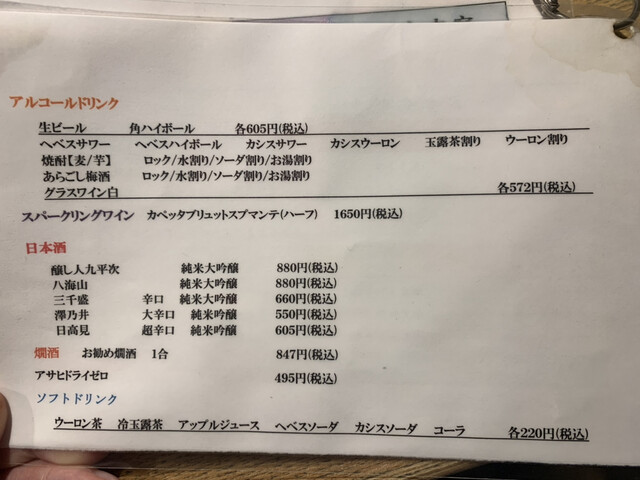 アルコールドリンク
生ビール 角ハイボール 各605円(税込)
ヘベスサワー ヘベスハイボール カシスサワー カシスウーロン 玉露茶割り ウーロン割り
焼酎【麦/芋】 ロック/水割り/ソーダ割り/お湯割り
あらごし梅酒 ロック/水割り/ソーダ割り/お湯割り
グラスワイン白 各572円(税込)
スパークリングワイン カベッタブリュットスプマンテ(ハーフ) 1650円(税込)
日本酒
醸し人九平次 純米大吟醸 880円(税込)
八海山 純米大吟醸 880円(税込)
三千盛 辛口 純米大吟醸 660円(税込)
澤乃井 大辛口 純米吟醸 550円(税込)
日高見 超辛口 純米吟醸 605円(税込)
燗酒 お勧め燗酒 1合 847円(税込)
アサヒドライゼロ 495円(税込)
ソフトドリンク
ウーロン茶 冷玉露茶 アップルジュース ヘベスソーダ カシスソーダ コーラ 各220円(税込)